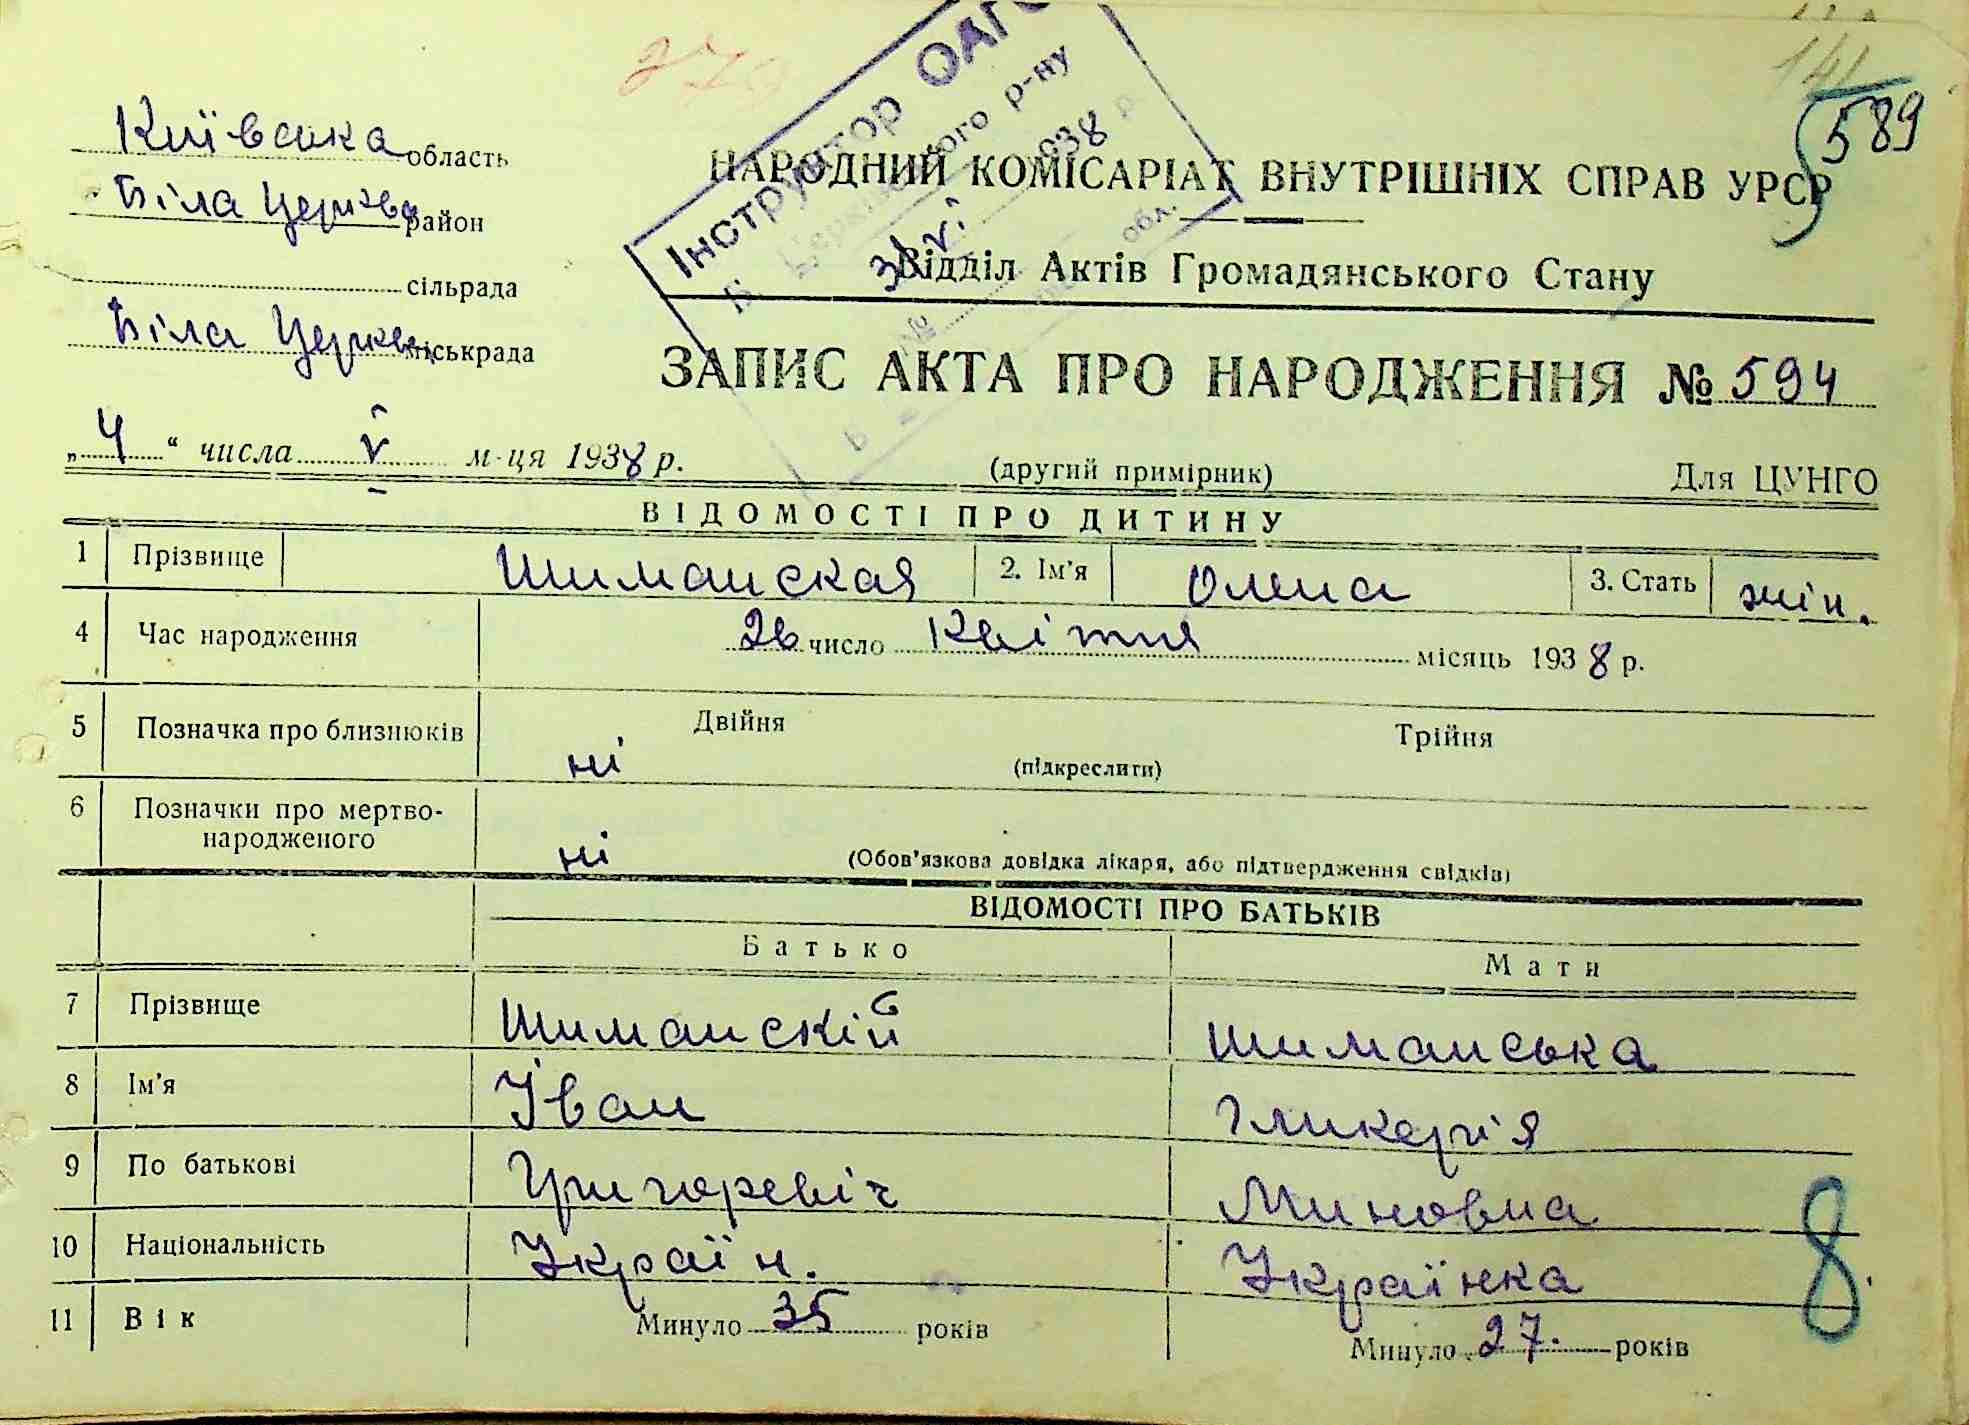 589
Київська область
Біла Церква район
сільрада
Біла Церква міськрада
Інструктор ОАГС
р-ну
31 VI 1938 р.
обл.
НАРОДНИЙ КОМІСАРІАТ ВНУТРІШНІХ СПРАВ УРСР
Відділ Актів Громадянського Стану
ЗАПИС АКТА ПРО НАРОДЖЕННЯ № 594
„4“ числа V м-ця 1938 р.
(другий примірник)
Для ЦУНГО
ВІДОМОСТІ ПРО ДИТИНУ
1 Прізвище Шиманская 2. Ім'я Олена 3. Стать жін.
4 Час народження 26 число Квітня місяць 1938 р.
5 Позначка про близнюків ні Двійня Трійня
(підкреслити)
6 Позначки про мертво-
народженого ні (Обов'язкова довідка лікаря, або підтвердження свідків)
ВІДОМОСТІ ПРО БАТЬКІВ
Батько Мати
7 Прізвище Шиманскій Шиманська
8 Ім'я Іван Гликерія
9 По батькові Григоревіч Миновна
10 Національність Україн. Українка
11 Вік Минуло 35 років Минуло 27. років
8